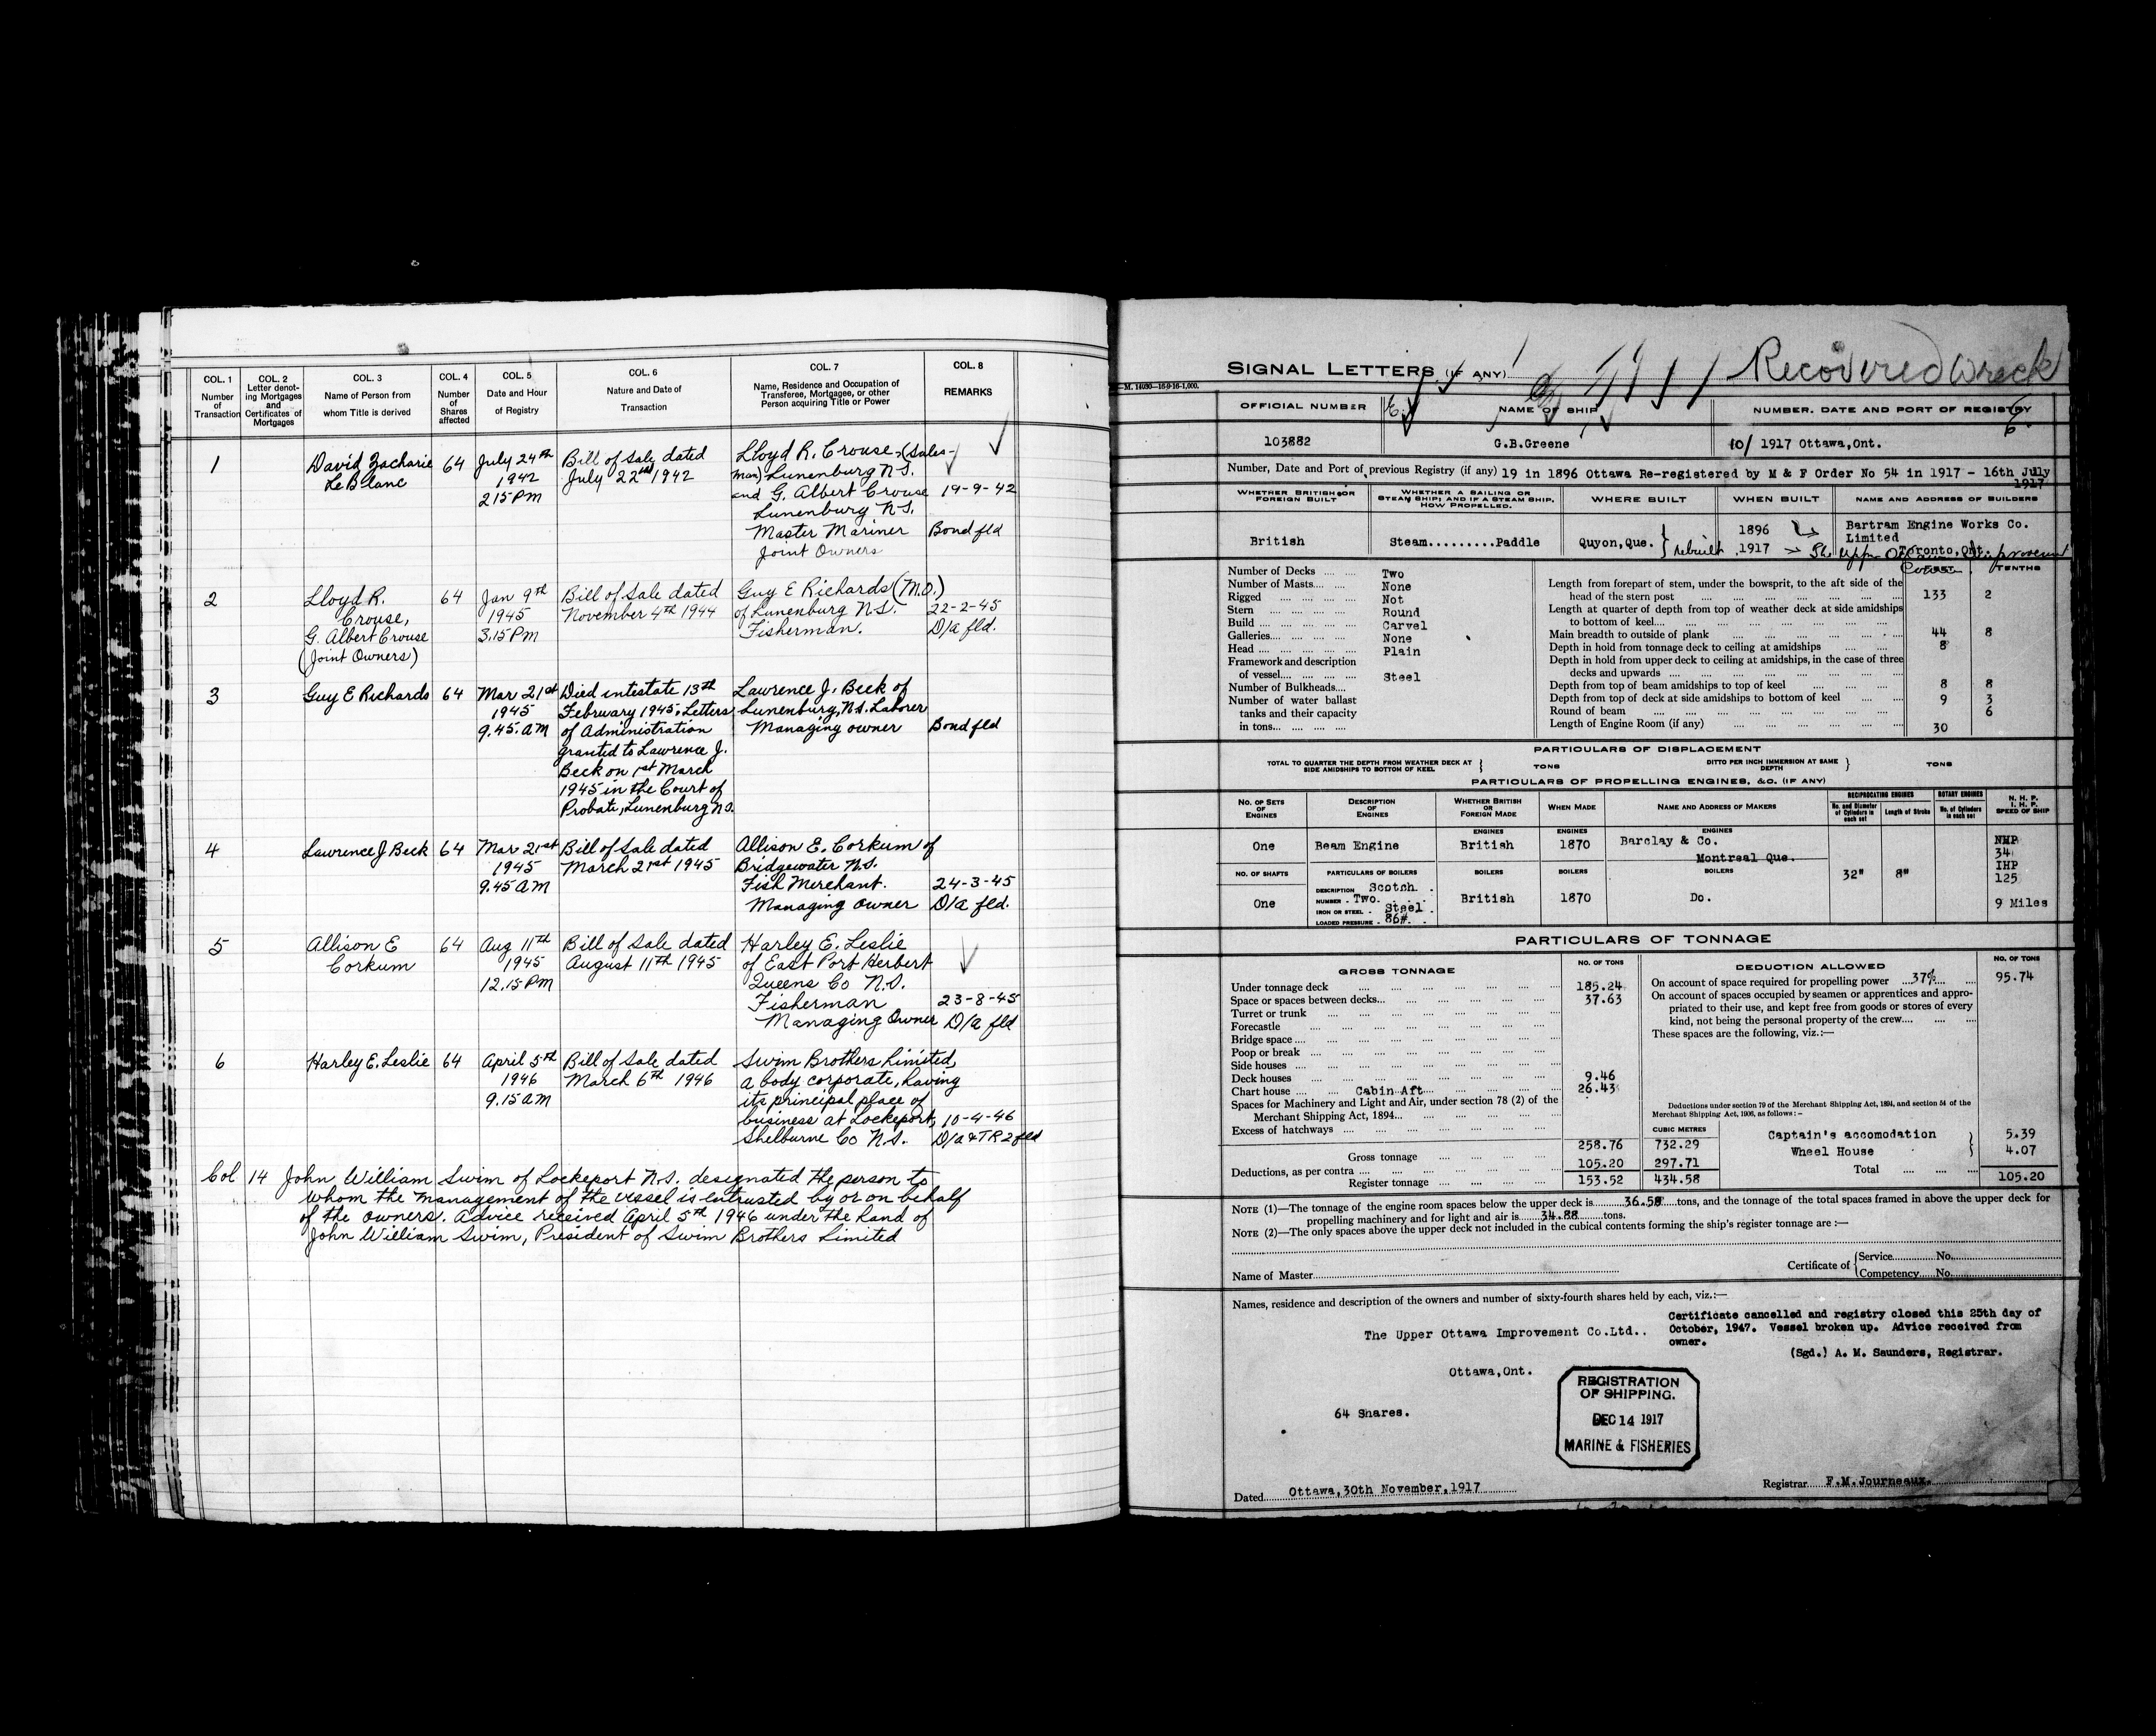 COL. 1 COL. 2 COL. 3 COL. 4 COL. 5 COL. 6 COL. 7 COL. 8
Number of Transaction
Letter denoting Mortgages and Certificates of Mortgages
Name of Person from whom Title is derived
Number of Shares affected
Date and Hour of Registry
Nature and Date of Transaction
Name, Residence and Occupation of Transferee, Mortgagee, or other Person acquiring Title or Power
REMARKS
1
David Zacharie
LeBlanc
64
July 24th
1942
2 15 PM
Bill of Sale dated
July 22nd 1942
Lloyd R. Crouse, (Sales-
man) Lunenburg N.S.
and G. Albert Crouse
Lunenburg N.S.
Master Mariner
Joint Owners
19-9-42
Bond fld
2
Lloyd R.
Crouse,
G. Albert Crouse
(Joint Owners)
64
Jan 9th
1945
3.15 PM
Bill of Sale dated
November 4th 1944
Guy E Richards (M.O.)
of Lunenburg N.S.
Fisherman.
22-2-45
D/a fld.
3
Guy E Richards
64
Mar 21st
1945
9.45. AM
Died intestate 13th
February 1945. Letters
of Administration
granted to Lawrence J.
Beck on 1st March
1945 in the Court of
Probate, Lunenburg N.S.
Lawrence J. Beck of
Lunenburg, N.S. Laborer
Managing owner
Bond fld
4
Lawrence J Beck
64
Mar 21st
1945
9.45 AM
Bill of Sale dated
March 21st 1945
Allison E. Corkum of
Bridgewater N.S.
Fish Merchant.
Managing owner
24-3-45
D/a fld.
5
Allison E
Corkum
64
Aug 11th
1945
12.15 PM
Bill of Sale dated
August 11th 1945
Harley E. Leslie
of East Port Herbert
Queens Co N.S.
Fisherman
Managing Owner
23-8-45
D/a fld
6
Harley E. Leslie
64
April 5th
1946
9.15 AM
Bill of Sale dated
March 6th 1946
Swim Brothers Limited,
a body corporate, having
its principal place of
business at Lockeport,
Shelburne Co N.S.
10-4-46
D/a & TR 2 fld
Col 14 John William Swim of Lockeport N.S. designated the person to
whom the management of the vessel is entrusted by or on behalf
of the owners. Advice received April 5th 1946 under the hand of
John William Swim, President of Swim Brothers Limited
SIGNAL LETTERS (IF ANY)
Recovered Wreck
M. 14030—16-9-16-1,000.
OFFICIAL NUMBER
NAME OF SHIP
NUMBER, DATE AND PORT OF REGISTRY
103882
G.B.Greene
10/ 1917 Ottawa,Ont.
Number, Date and Port of previous Registry (if any) 19 in 1896 Ottawa Re-registered by M & F Order No 54 in 1917 - 16th July
1917
WHETHER BRITISH OR FOREIGN BUILT
WHETHER A SAILING OR STEAM SHIP; AND IF A STEAM SHIP, HOW PROPELLED.
WHERE BUILT
WHEN BUILT
NAME AND ADDRESS OF BUILDERS
British
Steam.........Paddle
Quyon,Que. } rebuilt
1896
1917
Bartram Engine Works Co.
Limited
Toronto,Ont.
The Upper Ottawa Improvement
FEET TENTHS
Number of Decks Two
Number of Masts None
Rigged Not
Stern Round
Build Carvel
Galleries None
Head Plain
Framework and description
of vessel Steel
Number of Bulkheads
Number of water ballast
tanks and their capacity
in tons
Length from forepart of stem, under the bowsprit, to the aft side of the
head of the stern post 133 2
Length at quarter of depth from top of weather deck at side amidships
to bottom of keel
Main breadth to outside of plank 44 8
Depth in hold from tonnage deck to ceiling at amidships 8
Depth in hold from upper deck to ceiling at amidships, in the case of three
decks and upwards
Depth from top of beam amidships to top of keel 8 8
Depth from top of deck at side amidships to bottom of keel 9 3
Round of beam 6
Length of Engine Room (if any) 30
PARTICULARS OF DISPLACEMENT
TOTAL TO QUARTER THE DEPTH FROM WEATHER DECK AT SIDE AMIDSHIPS TO BOTTOM OF KEEL } TONS
DITTO PER INCH IMMERSION AT SAME DEPTH } TONS
PARTICULARS OF PROPELLING ENGINES, &C. (IF ANY)
No. OF SETS OF ENGINES
DESCRIPTION OF ENGINES
WHETHER BRITISH OR FOREIGN MADE
WHEN MADE
NAME AND ADDRESS OF MAKERS
RECIPROCATING ENGINES
No. and Diameter of Cylinders in each set
Length of Stroke
ROTARY ENGINES
No. of Cylinders in each set
N. H. P.
I. H. P.
SPEED OF SHIP
ENGINES ENGINES ENGINES
One
Beam Engine
British
1870
Barclay & Co.
Montreal Que.
32" 8"
NHP
34
IHP
125
9 Miles
NO. OF SHAFTS
PARTICULARS OF BOILERS
BOILERS BOILERS BOILERS
One
DESCRIPTION Scotch
NUMBER Two.
IRON OR STEEL Steel
LOADED PRESSURE 86#
British
1870
Do.
PARTICULARS OF TONNAGE
GROSS TONNAGE
NO. OF TONS
DEDUCTION ALLOWED
NO. OF TONS
Under tonnage deck 185.24
Space or spaces between decks 37.63
Turret or trunk
Forecastle
Bridge space
Poop or break
Side houses
Deck houses 9.46
Chart house Cabin Aft 26.43
Spaces for Machinery and Light and Air, under section 78 (2) of the
Merchant Shipping Act, 1894
Excess of hatchways
CUBIC METRES
Gross tonnage 258.76 732.29
Deductions, as per contra 105.20 297.71
Register tonnage 153.52 434.58
On account of space required for propelling power 37% 95.74
On account of spaces occupied by seamen or apprentices and appro-
priated to their use, and kept free from goods or stores of every
kind, not being the personal property of the crew
These spaces are the following, viz.:—
Deductions under section 79 of the Merchant Shipping Act, 1894, and section 54 of the
Merchant Shipping Act, 1906, as follows:—
Captain's accomodation 5.39
Wheel House 4.07
Total 105.20
NOTE (1)—The tonnage of the engine room spaces below the upper deck is 36.58 tons, and the tonnage of the total spaces framed in above the upper deck for
propelling machinery and for light and air is 34.88 tons.
NOTE (2)—The only spaces above the upper deck not included in the cubical contents forming the ship's register tonnage are :—
Name of Master
Certificate of { Service No.
Competency No.
Names, residence and description of the owners and number of sixty-fourth shares held by each, viz.:—
The Upper Ottawa Improvement Co.Ltd..
Ottawa,Ont.
64 Shares.
Certificate cancelled and registry closed this 25th day of
October, 1947. Vessel broken up. Advice received from
owner.
(Sgd.) A. M. Saunders, Registrar.
REGISTRATION
OF SHIPPING.
DEC 14 1917
MARINE & FISHERIES
Dated Ottawa,30th November,1917
Registrar F.M.Journeaux.